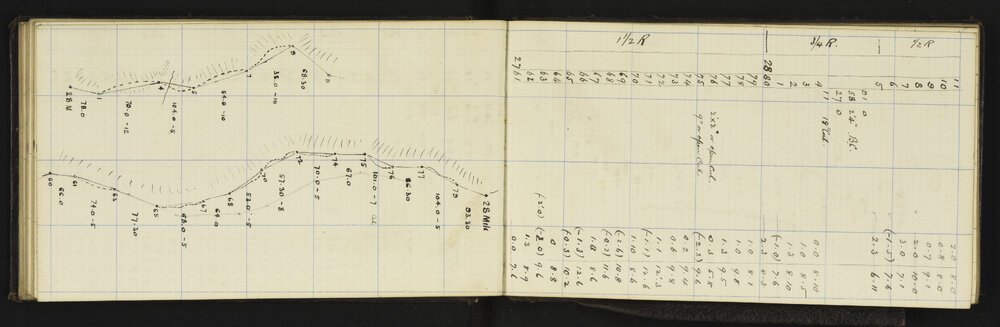 28 M
78.0
1
70.0-12
4
104.0-5
5
54.0-10
7
38.0-10
9
68.30
60
66.0
61
74.0-5
63
77.30
65
68.0-5
67
64.0
68
53.0-5
70
57.30-8
72
70.0-5
74
67.0
75
101.0-7
76
86.30
77
104.0-5
79
93.30
28 Mile
1½ R
¾ R.
½ R
2761
62
63
64
65
66
67
68
69
70
71
72
73
74
75
76
77
78
79
28.80
1
2
3
4
5
6
7
8
9
10
11
9" w open Cul.
2'x2' w open Cul.
11 18" Cul.
27 0
58 24" B.C.
91 0
0.0 9.6
1.3 8.9
(2'.0)
(-2.0) 9.6
0 8.8
(-0.3) 10.2
(-1.3) 12.6
1.11 8.6
(-0.2) 11.6
(-2.6) 10.8
1.10 8.6
(-1.1) 12.6
1.9 12.3
0.6 9.8
0.2 9.10
(-2.3) 9.6
0.3 5.8
1.3 9.5
1.0 9.8
1.0 8.1
2.3 8.3
(-1.0) 7.6
1.3 8.10
1.3 8.5
0.0 8.10
2.3 6.11
(-1.5) 7.6
3.0 7.1
2.0 10.0
0.7 9.1
0.8 8.0
2.0 8.0